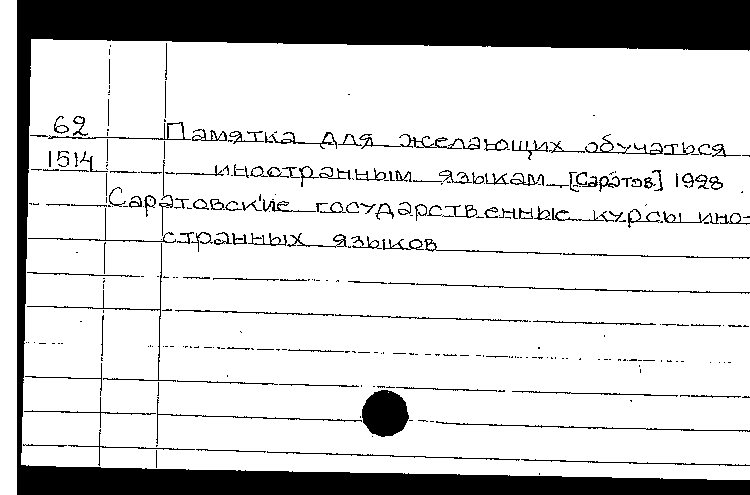 62 Памятка для желающих обучаться
1514 иностранным языкам [Саратов] 1928
Саратовские государственные курсы ино-
странных языков